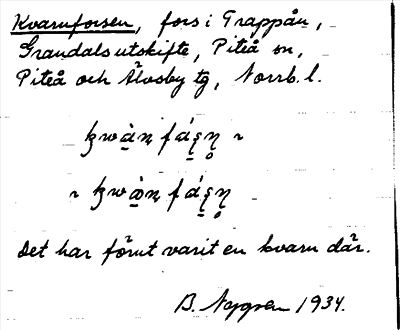 Kvarnforsen, fors i Grappån,
Grandals utskifte, Piteå sn,
Piteå och Älvsby tg, Norrb. l.
Det har förut varit en kvarn där.
B. Nygren 1934.